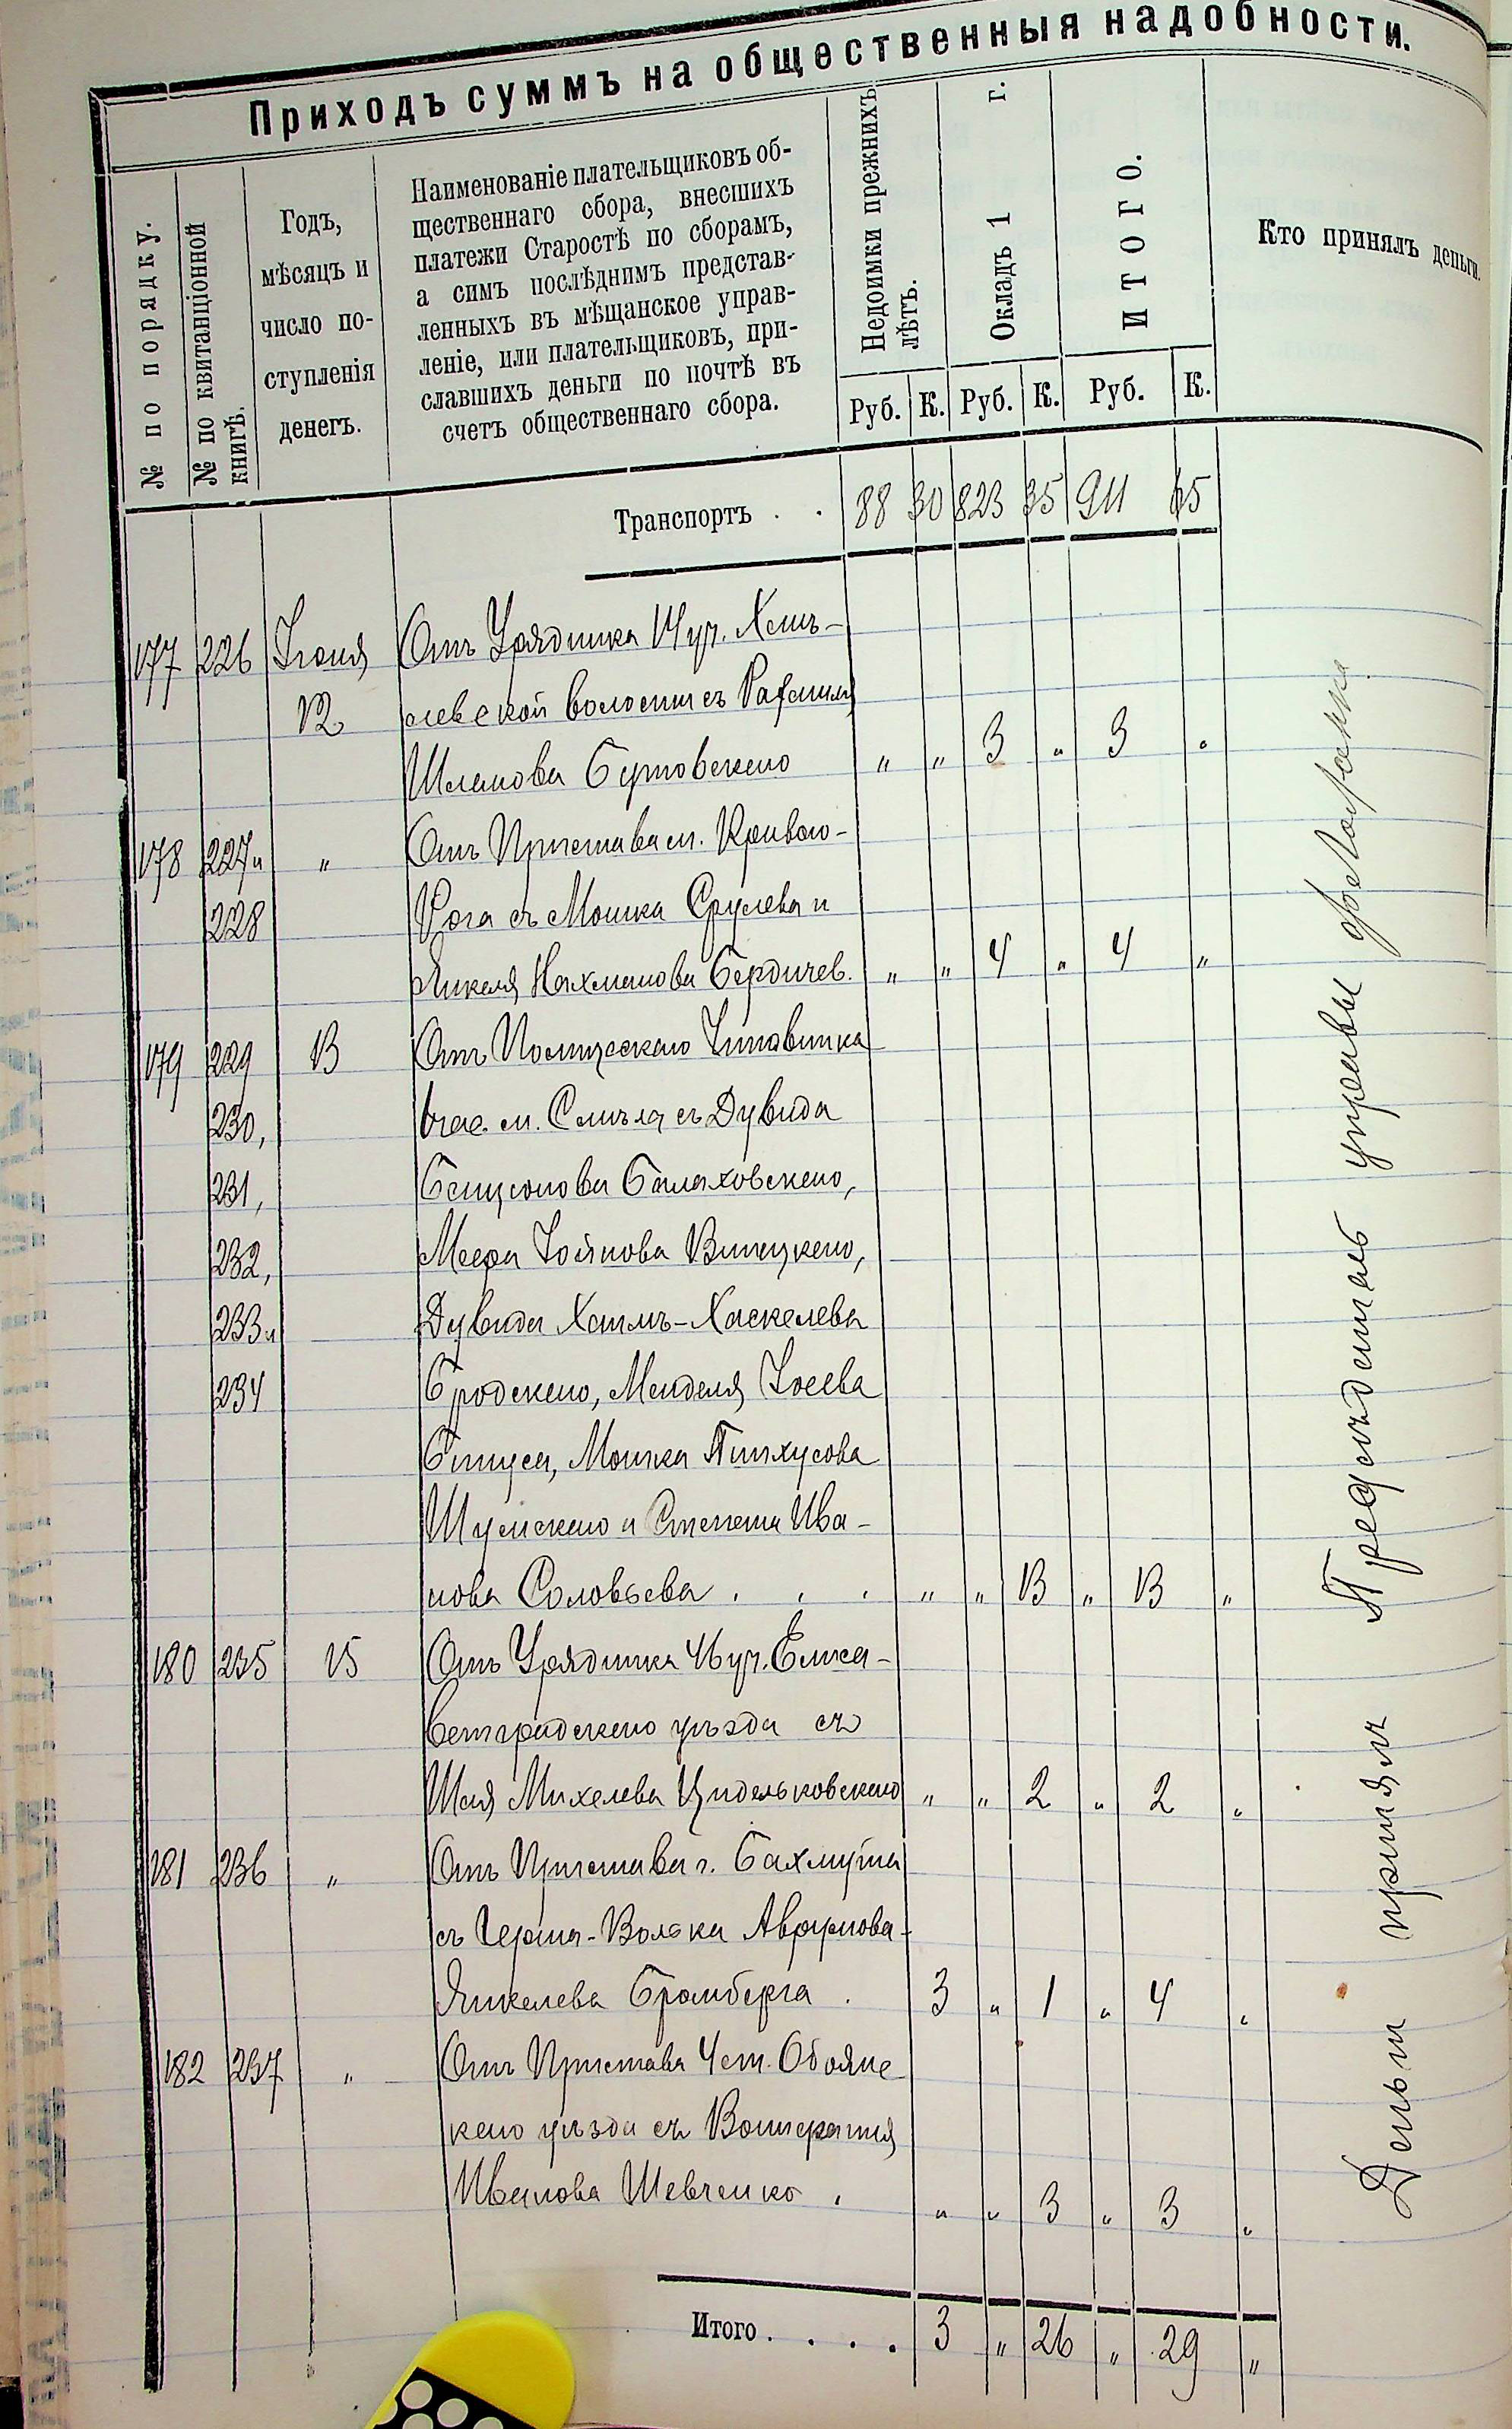 Приходъ суммъ на общественныя надобности.
№ по порядку.
№ по квитанціонной книгѣ.
Годъ,
мѣсяцъ и
число по-
ступленія
денегъ.
Наименованіе плательщиковъ об-
щественнаго сбора, внесшихъ
платежи Старостѣ по сборамъ,
а симъ послѣднимъ представ-
ленныхъ въ мѣщанское управ-
леніе, или плательщиковъ, при-
славшихъ деньги по почтѣ въ
счетъ общественнаго сбора.
Недоимки прежнихъ лѣтъ.
Окладъ 1 г.
ИТОГО.
Кто принялъ деньги.
Руб. К. Руб. К. Руб. К.
Транспортъ . . 88 30 823 35 911 65
177 226 Іюня Отъ Урядника 14 уч.
12 волости съ
" " 3 " 3 "
178 227 и " Отъ Пристава м. Кривого-
228 Рога съ Мошка Срулева и
Янкеля Нахманова Бердичев. " " 4 " 4 "
179 229 13 Отъ Полицескаго
230, м. Смѣла съ Дувида
231, Бенціонова Балаховскаго,
232, Меера Винецкаго,
233 и Дувида Хаимъ-Хаскелева
234 Бродскаго, Менделя Іосева
Мошка Пинхусова
Шумскаго и Степана Ива-
нова Соловьева . . . " " 13 " 13 "
180 235 15 Отъ Урядника 16 уч. Елиса-
ветградскаго уѣзда съ
Шая Михелева " " 2 " 2 "
181 236 " Отъ Пристава г. Бахмута
съ Герша-Волька Аврумова-
Янкелева Бромберга . 3 " 1 " 4 "
182 237 " Отъ Пристава 4 ст. Обоянс
каго уѣзда съ
Иванова Шевченко . " " 3 " 3 "
Итого . . . . 3 " 26 " 29 "
Деньги принялъ Предсѣдатель управы